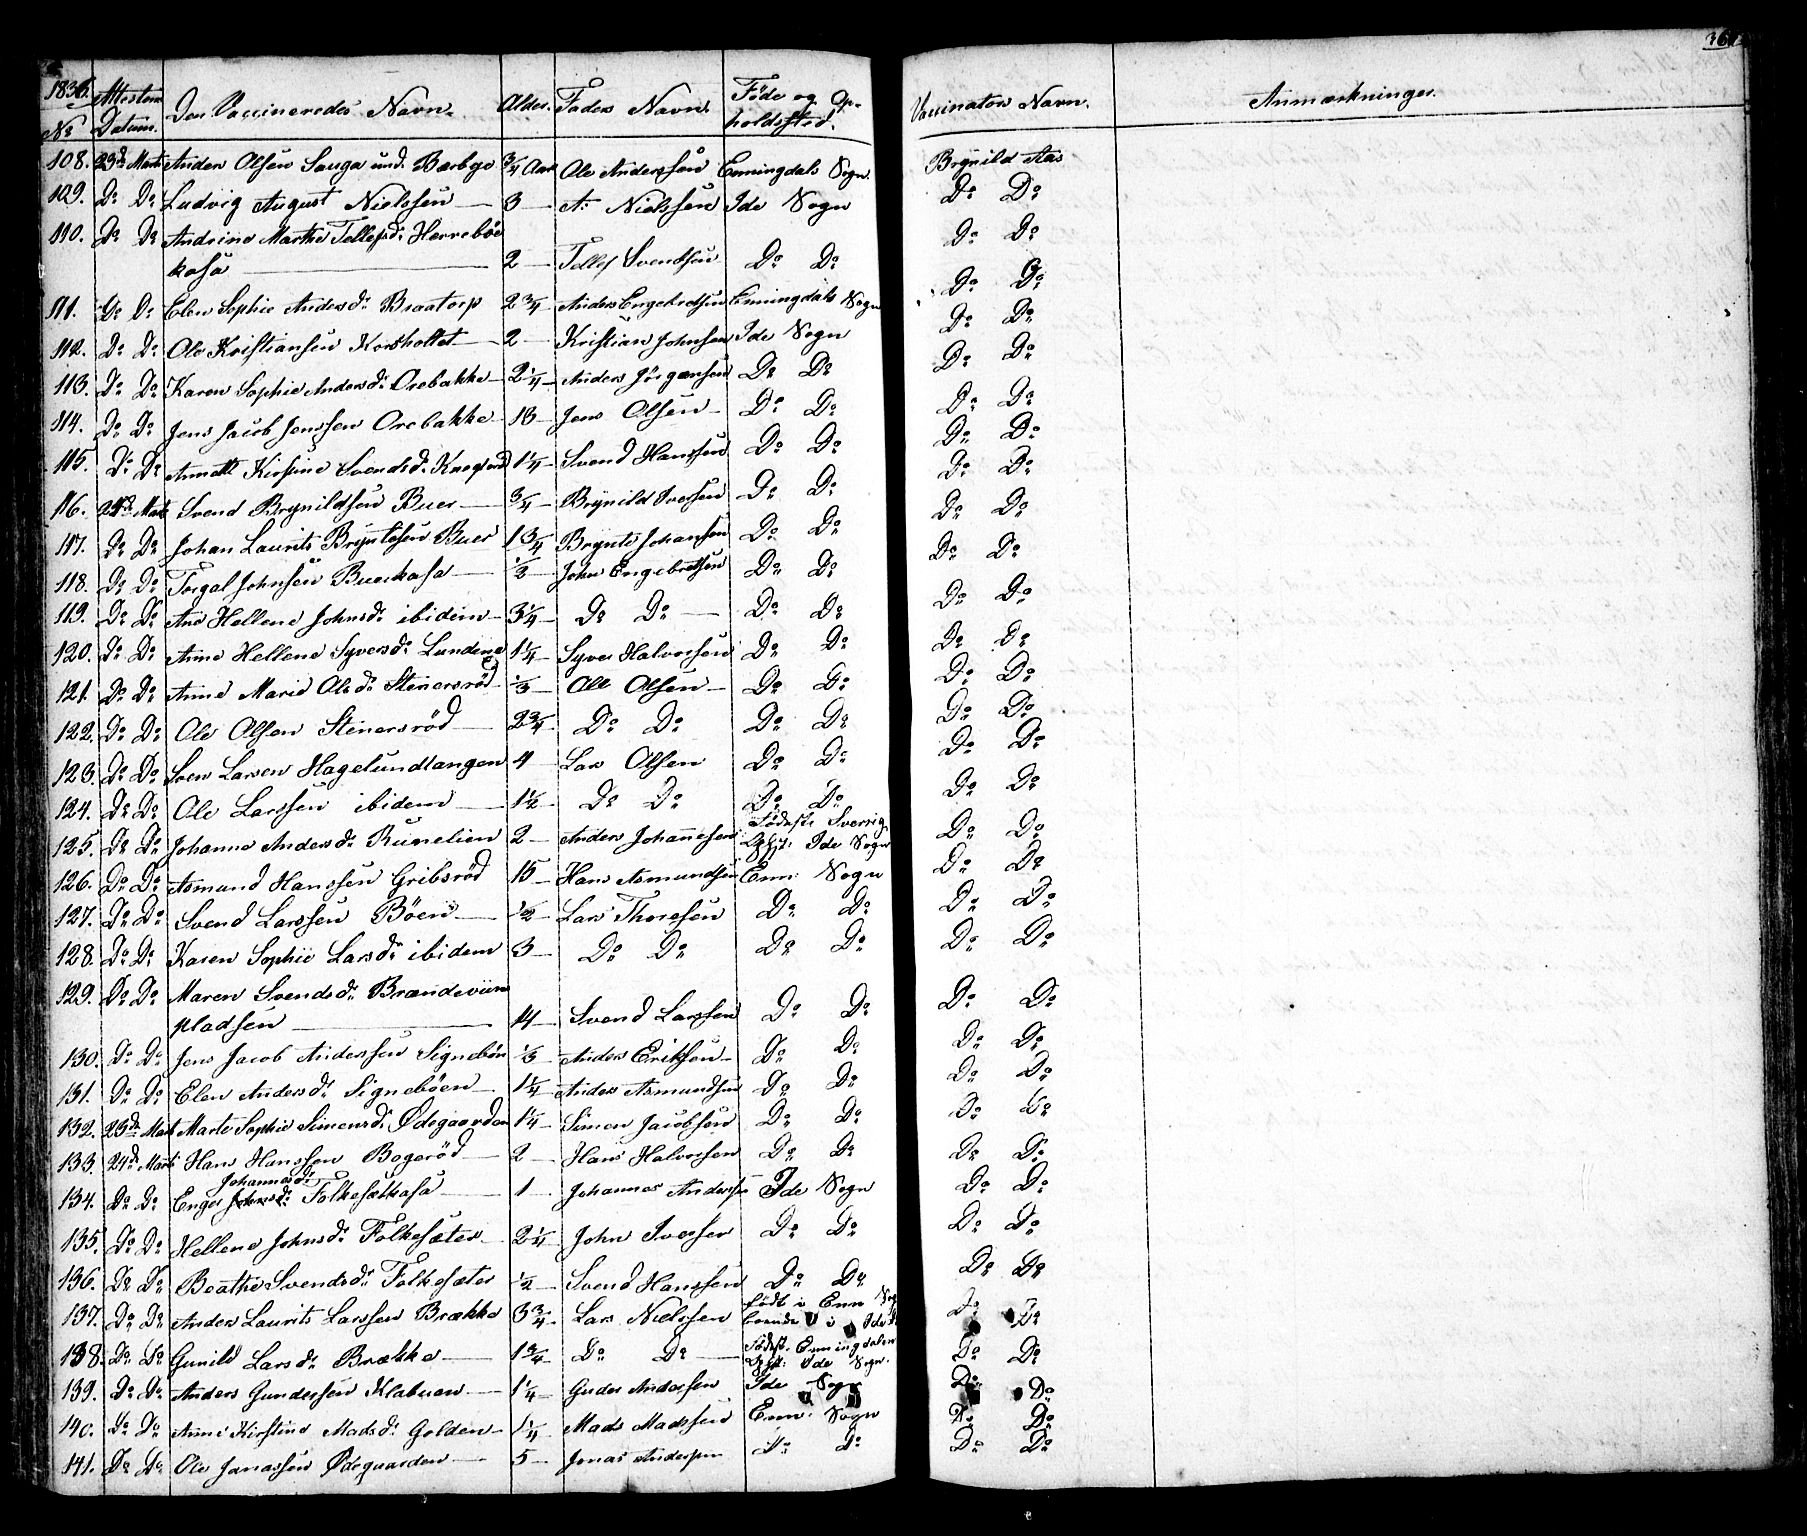 1836. Attestens Den Vaccineredes Navn. Alder. Faders Navn. Føde og Op- Vaccinators Navn. Anmærkninger. 367
No Datum. holdsted.
108. 23de Marti Anders Olsen Sauga und. Berbye 3/4 Aar Ole Anderssen Enningdals Sogn. Brynild Aas
109. Do Do Ludvig August Nielssen — 3 — A: Nielssen Ide Sogn Do Do
110. Do Do Andrine Marthe Tellefsdr Herrebøe Do Do
kasa — 2 — Tellef Svendsen Do Do Do Do
111. Do Do Elen Sophie Andersdr Braatorp 2 3/4 Anders Engebretsen Enningdals Sogn Do Do
112. Do Do Ole Kristiansen Korsholtet — 2 — Kristian Johnsen Ide Sogn Do Do
113. Do Do Karen Sophie Andersdr Orebakke — 2 1/4 — Anders Jörgensen Do Do Do Do
114. Do Do Jens Jacob Jenssen Orebakke — 13 — Jens Olsen — Do Do Do Do
115. Do Do Annette Kirstine Svendsdr 1 1/4 — Svend Hanssen Do Do Do Do
116. 24de Marti Svend Brynildsen Buer — 3/4 — Brynild Iversen Do Do Do Do
117. Do Do Johan Laurits Bryntesen Buer 1 3/4 Brynte Johansen Do Do Do Do
118. Do Do Torgal Johnsen Buerkasa — 1/2 — John Engebretsen Do Do Do Do
119. Do Do Ane Hellene Johnsdr ibidem — 3 1/4 — Do Do — Do Do Do Do
120. Do Do Anne Hellene Syversdr Lundene 1 1/4 — Syver Halvorsen Do Do Do Do
121. Do Do Anne Marie Olsdr Stenersröd 1/3 — Ole Olsen — Do Do Do Do
122. Do Do Ole Olsen Stenersröd — 2 3/4 Do Do Do Do Do Do
123. Do Do Sven Larsen Hagelundtangen 4 — Lars Olsen Do Do Do Do
124. Do Do Ole Larssen ibidem — 1 1/2 — Do Do Do Do Do Do
125. Do Do Johanne Andersdr Runelien 2 — Anders Johannesen Fødest: Sverrig Opst: Ide Sogn Do Do
126. Do Do Asmund Hanssen Gribsröd 15 — Hans Asmundsen Enn: Sogn Do Do
127. Do Do Svend Larssen Böen — 1/2 — Lars Thoresen Do Do Do Do
128. Do Do Karen Sophie Larsdr ibidem 3 — Do Do Do Do Do Do
129. Do Do Maren Svendsdr Brændeviins
pladsen — 14 — Svend Larssen Do Do Do Do
130. Do Do Jens Jacob Anderssen Signebøen 1/3 — Anders Eriksen — Do Do Do Do
131. Do Do Elen Andersdr Signebøen — 1 1/4 — Anders Asmundsen Do Do Do Do
132. 23de Marti Marte Sophie Simensdr Ødegaarden 1 1/4 — Simen Jacobsen Do Do Do Do
133. 24de Marti Hans Hanssen Bogeröd — 2 — Hans Halvorsen Do Do Do Do
Johannesdr
134. Do Do Enger Johnsdr Folkesætkasa — 1 — Johannes Anderss: Ide Sogn Do Do
135. Do Do Hellene Johnsdr Folkesæter — 2 1/4 — John Iversen Do Do Do Do
136. Do Do Beathe Svendsdr Folkesæter 1/2 — Svend Hanssen Do Do Do Do
137. Do Do Anders Laurits Larssen Brække 3 3/4 Lars Nielssen født i Enn Sogn i Ide Do Do
138. Do Do Gunild Larsdr Brække — 1 3/4 — Do Do — Fødest. Enningdalen Opst: Ide Sogn. Do Do
139. Do Do Anders Gundersen Klabuan — 1 1/4 Guder Andersen Ide Sogn Do Do
140. Do Do Anne Kirstine Madsdr Golden — 1 1/4 — Mads Madssen Enn: Sogn Do Do
141. Do Do Ole Janassen Ødegaarden — 5 — Jonas Anderssen Do Do Do Do